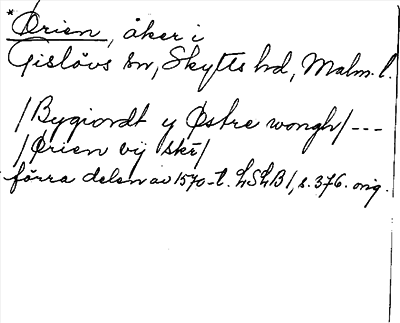 *Ørien, åker i
Gislövs sn, Skytts hd, Malm. l.
/Bygiordt y Østre wongh/ ---
/Ørien vij skr/
förra delen av 1570-t. LSLB 1, s. 376. orig.